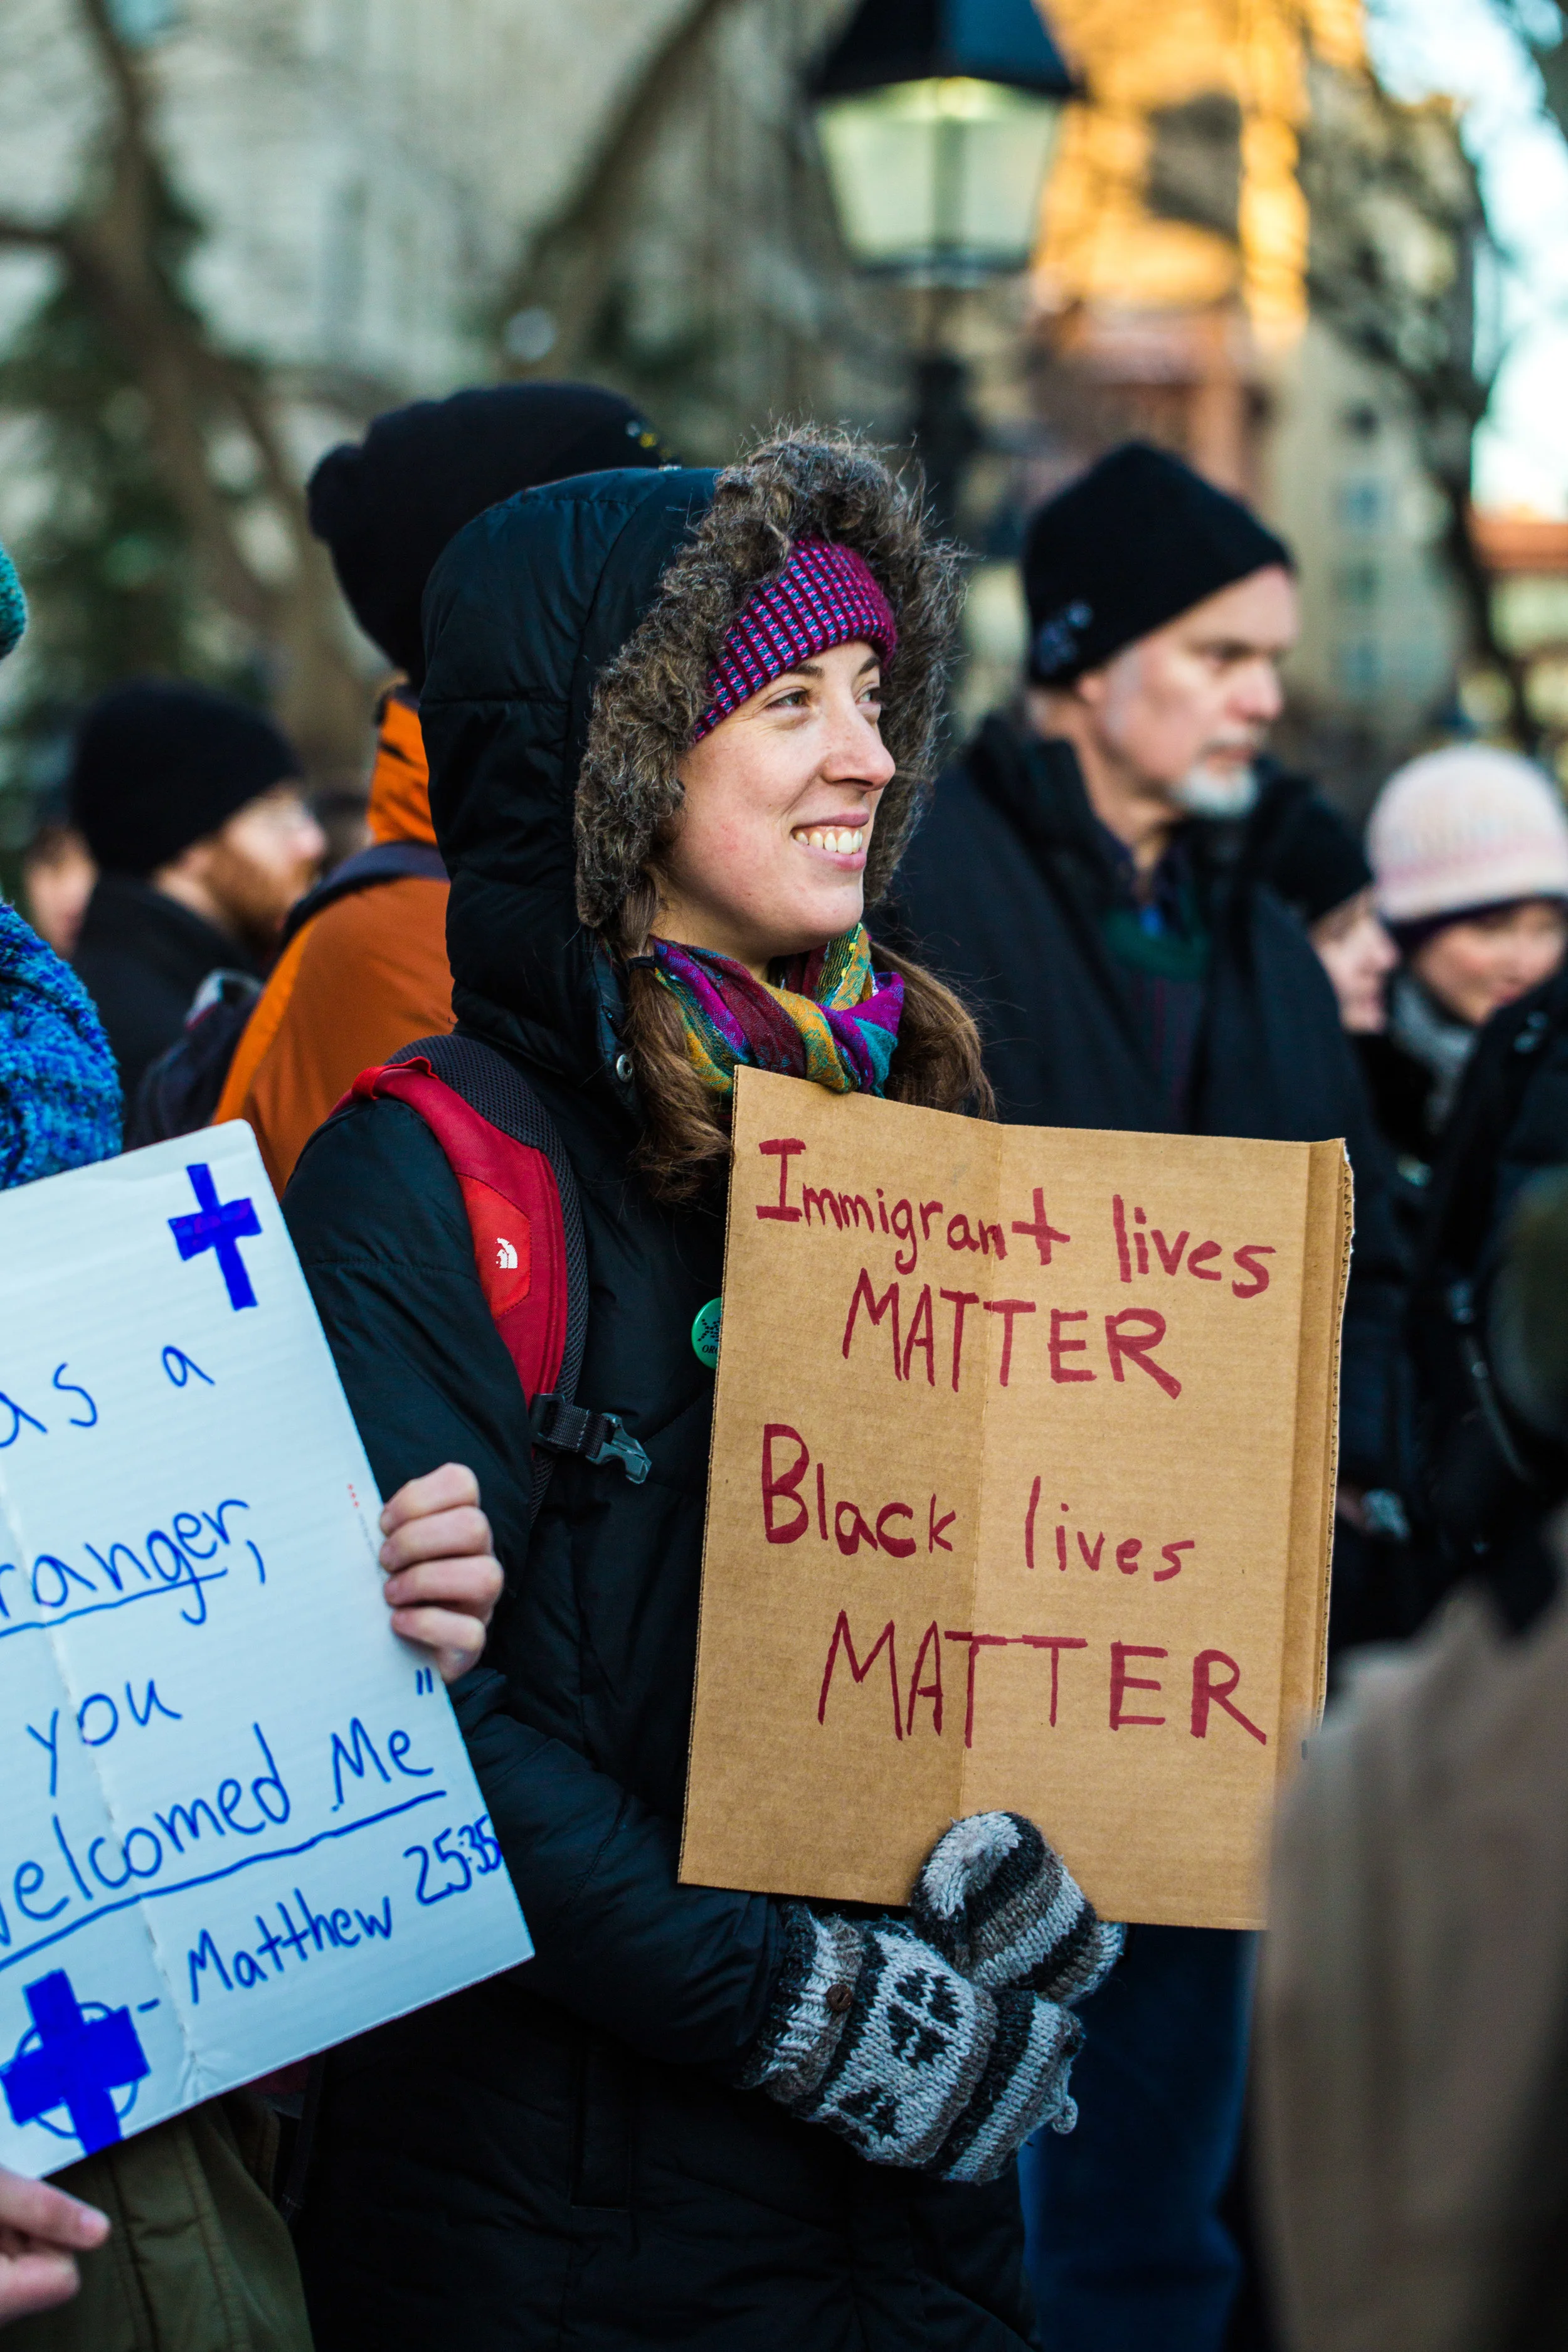 as a
ranger,
you
welcomed Me"
- Matthew 25:35
Immigrant lives
MATTER
Black lives
MATTER